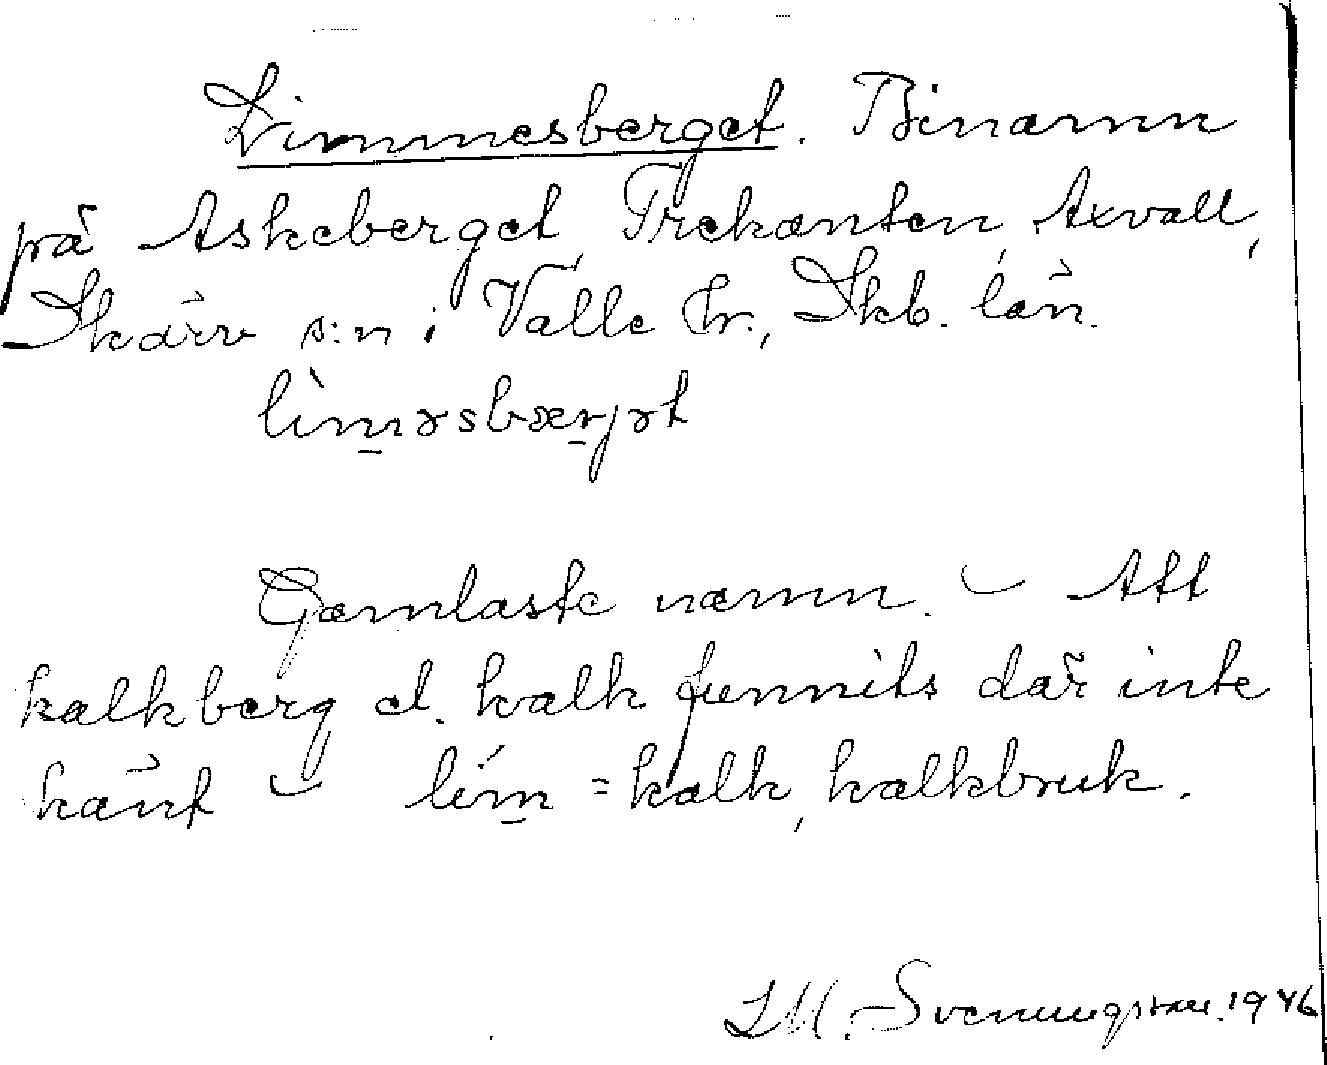 Limmesberget. Binamn
på Askeberget, Trekanten, Axvall,
Skärv s:n i Valle hr., Skb. län.
lìm̲əsbær̲jət
Gamlaste namn. – Att
kalkberg el. kalk funnits där inte
känt – lím̲ = kalk, kalkbruk.
S.M. Svenungsson. 1946